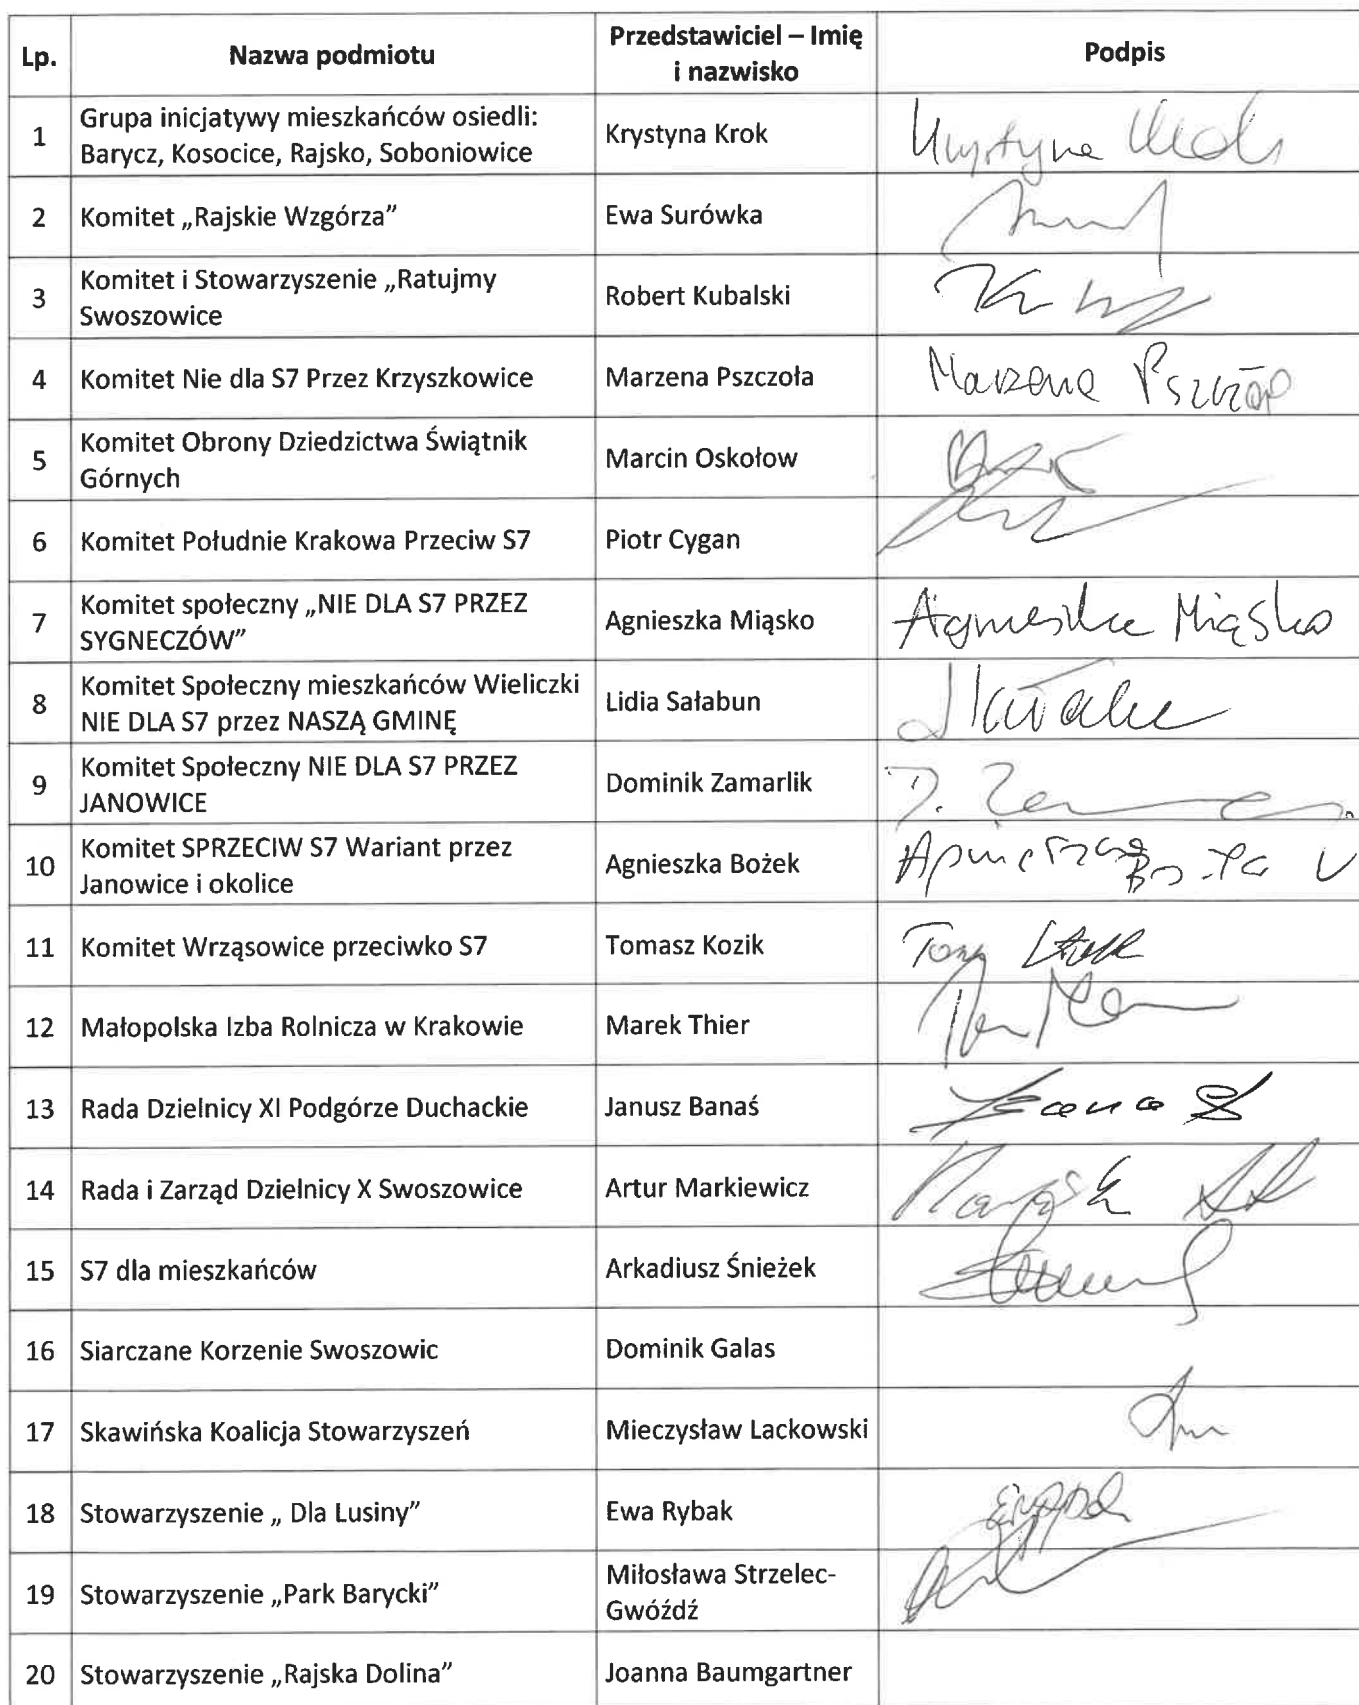 Lp. Nazwa podmiotu Przedstawiciel – Imię i nazwisko Podpis
1 Grupa inicjatywy mieszkańców osiedli: Krystyna Krok Krystyna Krok
Barycz, Kosocice, Rajsko, Soboniowice
2 Komitet „Rajskie Wzgórza” Ewa Surówka
3 Komitet i Stowarzyszenie „Ratujmy Robert Kubalski
Swoszowice
4 Komitet Nie dla S7 Przez Krzyszkowice Marzena Pszczoła Marzena Pszczoła
5 Komitet Obrony Dziedzictwa Świątnik Marcin Oskołow
Górnych
6 Komitet Południe Krakowa Przeciw S7 Piotr Cygan
7 Komitet społeczny „NIE DLA S7 PRZEZ Agnieszka Miąsko Agnieszka Miąsko
SYGNECZÓW”
8 Komitet Społeczny mieszkańców Wieliczki Lidia Sałabun
NIE DLA S7 przez NASZĄ GMINĘ
9 Komitet Społeczny NIE DLA S7 PRZEZ Dominik Zamarlik
JANOWICE
10 Komitet SPRZECIW S7 Wariant przez Agnieszka Bożek
Janowice i okolice
11 Komitet Wrząsowice przeciwko S7 Tomasz Kozik
12 Małopolska Izba Rolnicza w Krakowie Marek Thier
13 Rada Dzielnicy XI Podgórze Duchackie Janusz Banaś
14 Rada i Zarząd Dzielnicy X Swoszowice Artur Markiewicz
15 S7 dla mieszkańców Arkadiusz Śnieżek
16 Siarczane Korzenie Swoszowic Dominik Galas
17 Skawińska Koalicja Stowarzyszeń Mieczysław Lackowski
18 Stowarzyszenie „ Dla Lusiny” Ewa Rybak
19 Stowarzyszenie „Park Barycki” Miłosława Strzelec-
Gwóźdź
20 Stowarzyszenie „Rajska Dolina” Joanna Baumgartner